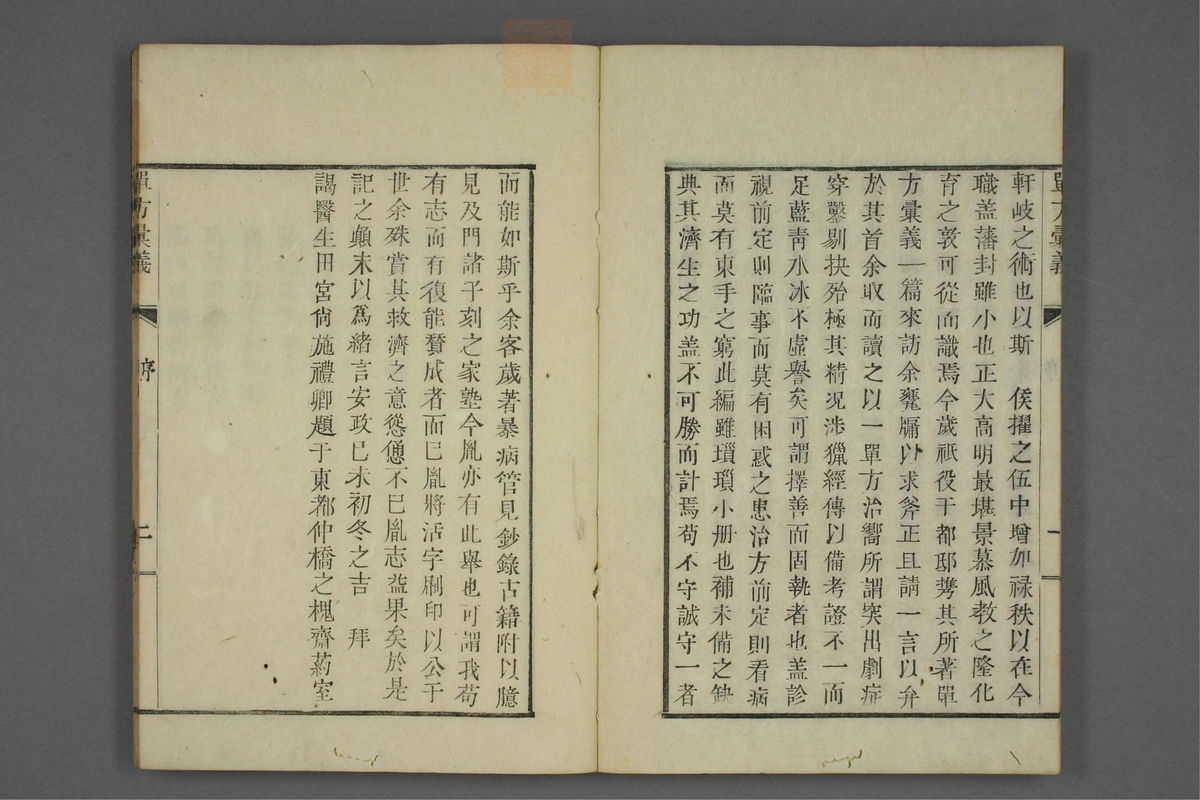 單方彙義
一
軒岐之術也以斯　侯擢之伍中增加祿秩以在今
職盖藩封雖小也正大高明最堪景慕風教之隆化
育之敦可從而識焉今歲祗役于都邸携其所著單
方彙義一篇來訪余甕牖以求斧正且請一言以弁
於其首余取而讀之以一單方治嚮所謂突出劇症
穿鑿剔抉殆極其精况涉獵經傳以備考證不一而
足藍靑水冰不虛譽矣可謂擇善而固執者也盖診
視前定則臨事而莫有困惑之患治方前定則看病
而莫有束手之窮此編雖瑣瑣小册也補未備之缺
典其濟生之功盖不可勝而計焉苟不守誠守一者
而能如斯乎余客歲著暴病管見鈔錄古籍附以臆
見及門諸子刻之家塾今胤亦有此擧也可謂我苟
有志而有復能賛成者而已胤將活字刷印以公于
世余殊賞其救濟之意慫慂不已胤志益果矣於是
記之顛末以爲緒言安政己未初冬之吉　拜
謁醫生田宮尙施禮卿題于東都仲橋之槐齋葯室
單方彙義
序
二